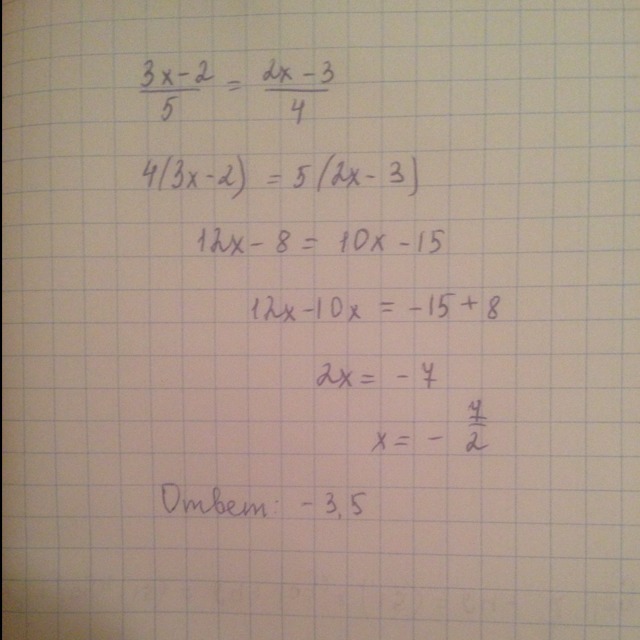 3x-2/5 = 2x-3/4
4(3x-2) = 5(2x-3)
12x-8 = 10x-15
12x-10x = -15+8
2x = -7
x = - 7/2
Ответ: -3,5